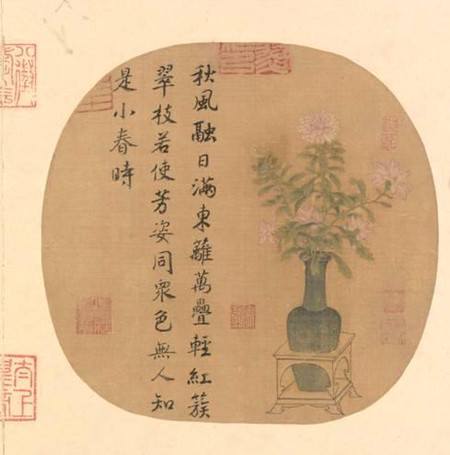 秋風融日滿東離萬疊輕紅簇
翠枝若使芳姿同衆色無人知
是小春時